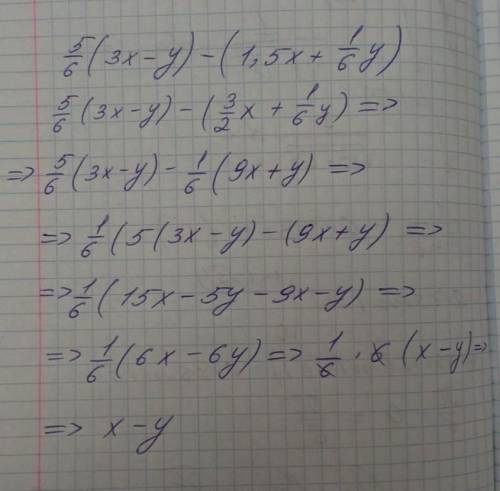 5/6(3x-y)-(1,5x+1/6y)
5/6(3x-y)-(3/2x+1/6y)=>
=>5/6(3x-y)-1/6(9x+y)=>
=>1/6(5(3x-y)-(9x+y)=>
=>1/6(15x-5y-9x-y)=>
=>1/6(6x-6y)=>1/6·6(x-y)=>
=> x-y